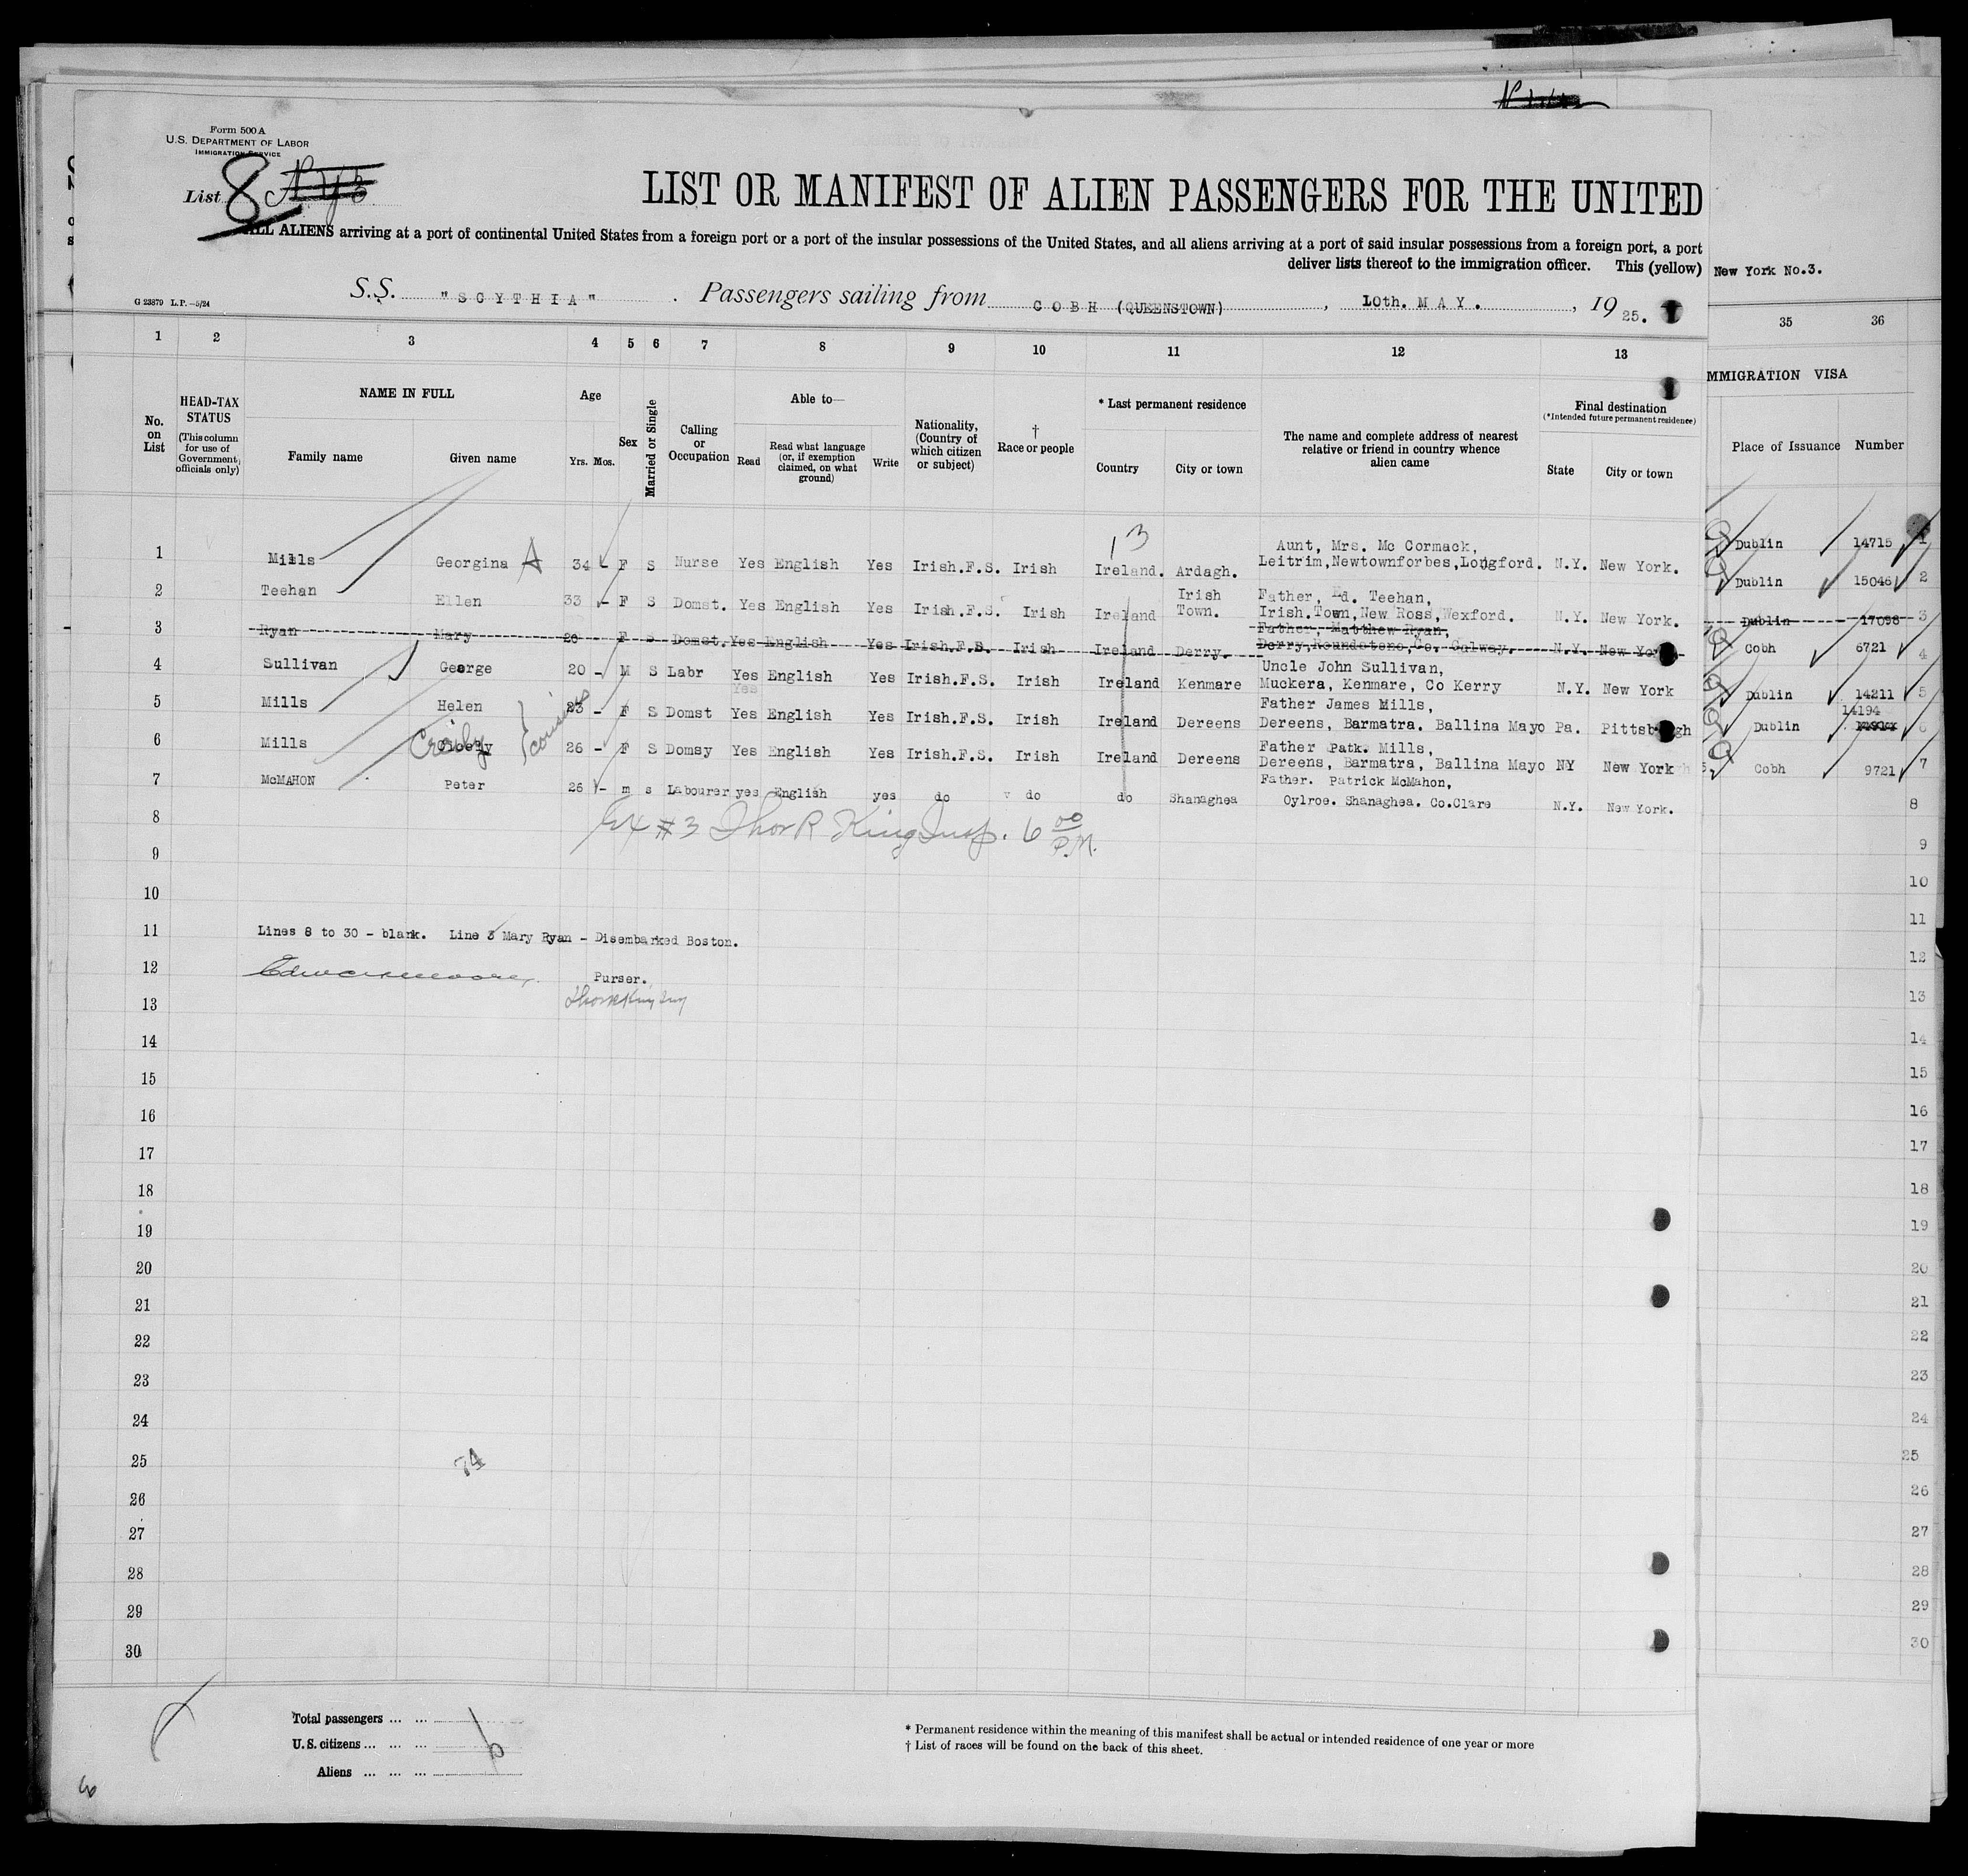 Form 500 A
U.S. DEPARTMENT OF LABOR
IMMIGRATION SERVICE
List 8
LIST OR MANIFEST OF ALIEN PASSENGERS FOR THE UNITED
ALL ALIENS arriving at a port of continental United States from a foreign port or a port of the insular possessions of the United States, and all aliens arriving at a port of said insular possessions from a foreign port, a port
deliver lists thereof to the immigration officer. This (yellow)
New York No.3.
G 23879 L.P.—5/24
S.S. "SCYTHIA" . Passengers sailing from COBH (QUEENSTOWN) , 10th. MAY. , 19 25.
1 2 3 4 5 6 7 8 9 10 11 12 13 35 36
No. on List
HEAD-TAX STATUS
(This column for use of Government officials only)
NAME IN FULL
Family name Given name
Age
Yrs. Mos.
Sex
Married or Single
Calling or Occupation
Able to—
Read
Read what language (or, if exemption claimed, on what ground)
Write
Nationality, (Country of which citizen or subject)
† Race or people
* Last permanent residence
Country City or town
The name and complete address of nearest relative or friend in country whence alien came
Final destination
(*Intended future permanent residence)
State City or town
MMIGRATION VISA
Place of Issuance Number
13
1 Mills Georgina A 34 - F S Nurse Yes English Yes Irish.F.S. Irish Ireland. Ardagh. Aunt, Mrs. Mc Cormack,
Leitrim,Newtownforbes,Longford. N.Y. New York. Dublin 14715 1
2 Teehan Ellen 33 - F S Domst. Yes English Yes Irish.F.S. Irish Ireland Irish Town. Father, Ed. Teehan,
Irish.Town,New Ross,Wexford. N.Y. New York. Dublin 15046 2
3 Ryan Mary 20 F S Domst. Yes English Yes Irish.F.S. Irish Ireland Derry. Father, Matthew Ryan,
Derry,Roundstone,Co. Galway. N.Y. New York. Dublin 17098 3
4 Sullivan George 20 - M S Labr Yes English Yes Irish.F.S. Irish Ireland Kenmare Uncle John Sullivan,
Muckera, Kenmare, Co Kerry N.Y. New York Cobh 6721 4
Yes
5 Mills Helen 23 - F S Domst Yes English Yes Irish.F.S. Irish Ireland Dereens Father James Mills,
Dereens, Barmatra. Ballina Mayo Pa. Pittsburgh Dublin 14211 5
cousins
6 Mills Cicely 26 - F S Domsy Yes English Yes Irish.F.S. Irish Ireland Dereens Father Patk. Mills,
Dereens, Barmatra, Ballina Mayo NY New York Dublin 14194 6
7 McMAHON Peter 26 - m s Labourer yes English yes do do do Shanaghea Father. Patrick McMahon,
Oylroe. Shanaghea. Co.Clare N.Y. New York. Cobh 9721 7
8 #3 Thos R King Insp. 6 00 P.M. 8
9 9
10 10
11 Lines 8 to 30 - blank. Line 3 Mary Ryan - Disembarked Boston. 11
12 Purser. 12
13 13
14 14
15 15
16 16
17 17
18 18
19 19
20 20
21 21
22 22
23 23
24 24
25 25
26 26
27 27
28 28
29 29
30 30
Total passengers ... ...
U.S. citizens ... ... ... 6
Aliens ... ... ...
* Permanent residence within the meaning of this manifest shall be actual or intended residence of one year or more
† List of races will be found on the back of this sheet.